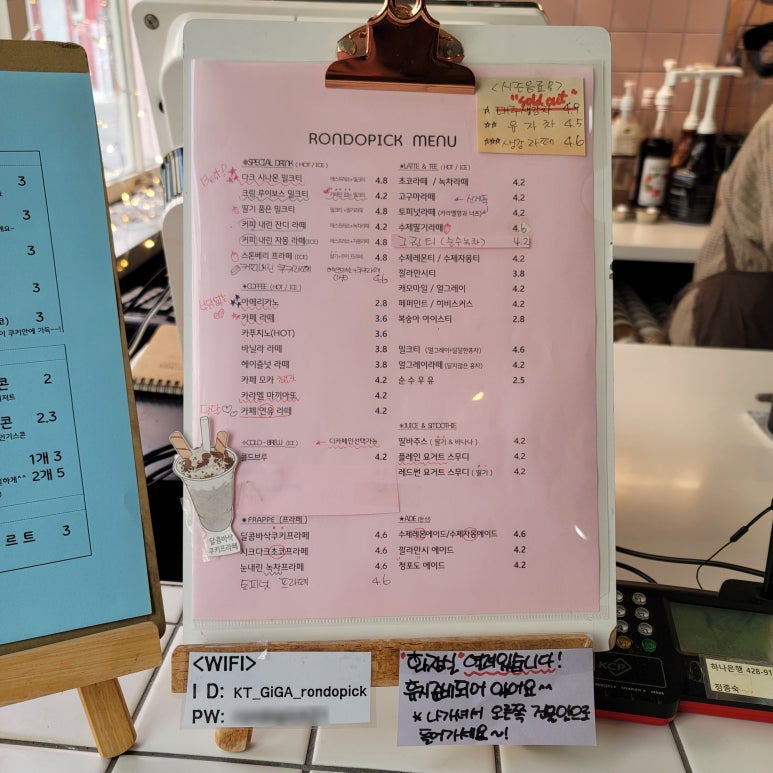 RONDOPICK MENU
<시즌음료>
"sold out"
* 대추생강차 4.9
** 유자차 4.5
*** 생강라떼 4.6
Best!
※SPECIAL DRINK (HOT / ICE)
다크 시나몬 밀크티 에스프레소+밀크티 4.8
크림 루이보스 밀크티 4.8
딸기 품은 밀크티 밀크티+딸기라떼 4.2
커피 내린 잔디 라떼 에스프레소+녹차라떼 4.2
커피 내린 자몽 라떼(ICE) 에스프레소+자몽라떼 4.8
스톤베리 프라페 (ICE) 4.8
커피내린 쿠키라떼 4.6
※COFFEE (HOT / ICE)
아메리카노 2.8
카페 라떼 3.6
카푸치노(HOT) 3.6
바닐라 라떼 3.8
헤이즐넛 라떼 3.8
카페 모카 4.2
카라멜 마끼아또 4.2
달달
카페 연유 라떼 4.2
※COLD-BREW (ICE)
디카페인선택가능
콜드브루 4.2
★FRAPPE (프라페)
달콤바삭쿠키프라페 4.6
시크다크초코프라페 4.6
눈내린 녹차프라페 4.6
토피넛 프라페 4.6
★LATTE & TEE (HOT / ICE)
초코라떼 / 녹차라떼 4.2
고구마라떼 4.2
토피넛라떼 (카라멜향과 너츠) 4.2
수제딸기라떼 4.6
그린티 (순수녹차) 4.2
수제레몬티 / 수제자몽티 4.2
깔라만시티 3.8
캐모마일 / 얼그레이 4.2
페퍼민트 / 히비스커스 4.2
복숭아 아이스티 2.8
밀크티 (얼그레이+달달한홍차) 4.6
얼그레이라떼 (달지않은 홍차) 4.2
순수우유 2.5
★JUICE & SMOOTHIE
딸바주스 (딸기 & 바나나) 4.2
플레인 요거트 스무디 4.2
레드썬 요거트 스무디 (딸기) 4.2
★ADE (탄산)
수제레몬에이드/수제자몽에이드 4.6
깔라만시 에이드 4.2
청포도 에이드 4.2
달콤바삭
쿠키프라페
3
3
3
3
3
콘 2
콘 2.3
1개 3
2개 5
르트 3
<WIFI>
ID: KT_GiGA_rondopick
PW:
"화장실" 열려있습니다!
휴지준비되어 있어요~
* 나가셔서 오른쪽 건물안으로
들어가세요~!
KCP
하나은행 428-91
정종숙